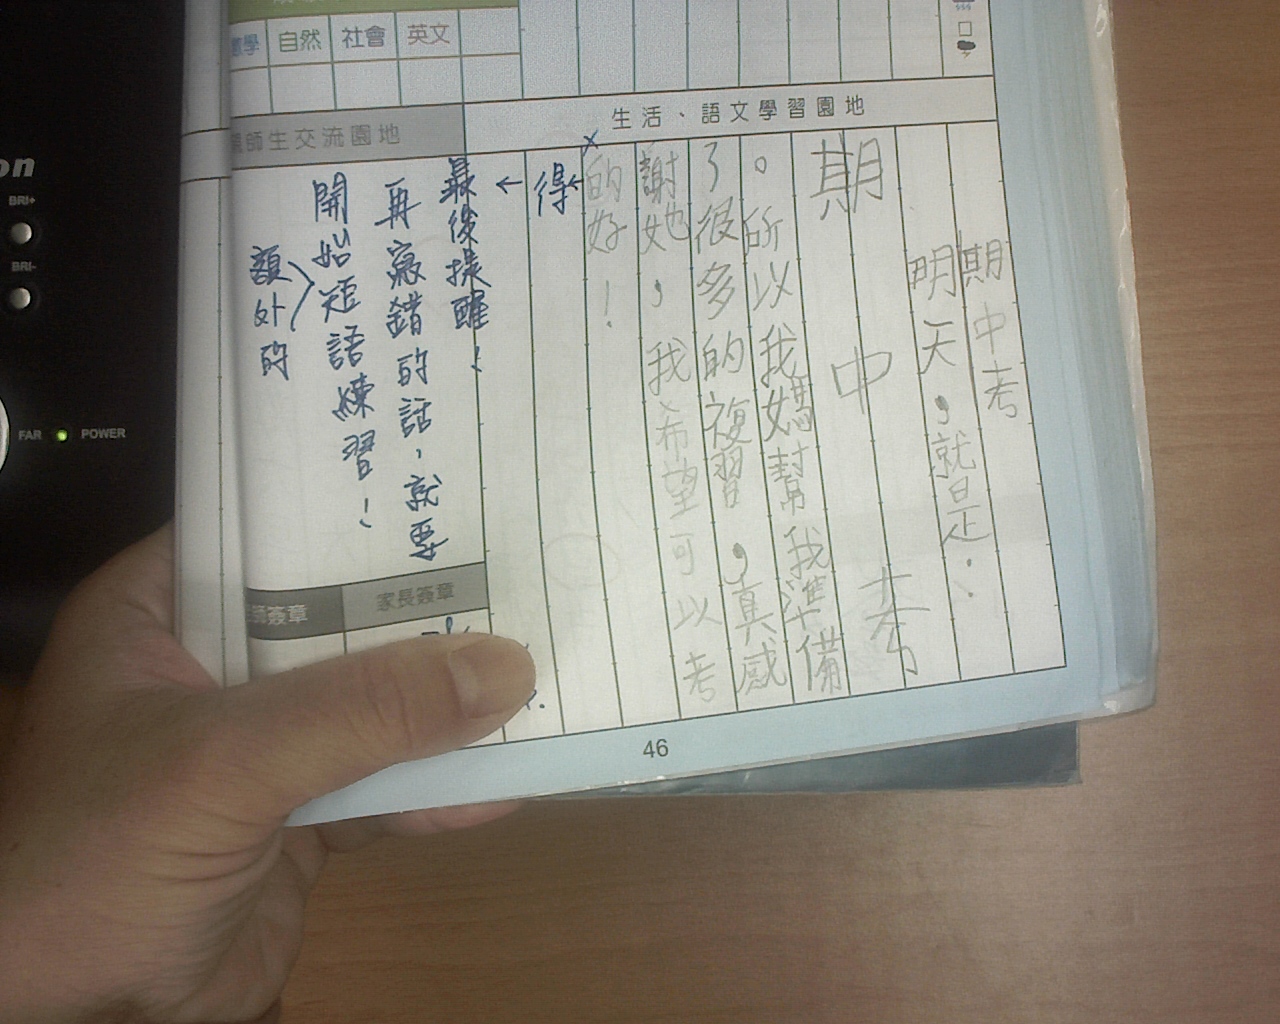 數學 自然 社會 英文
親師生交流園地
生活、語文學習園地
期中考
明天,就是..
期中考
。所以我媽幫我準備
了很多的複習,真感
謝她,我希望可以考
的好!
得
最後提醒!
再寫錯的話,就要
開始短語練習!
額外的
師簽章
家長簽章
46
on
BRI+
BRI-
FAR
POWER